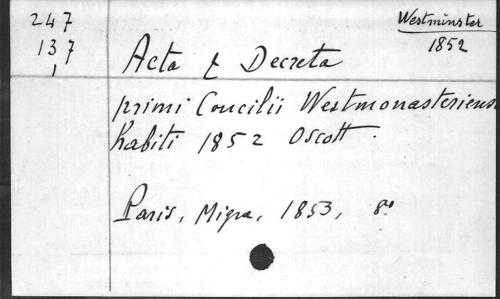 247
137
1
Westminster
1852
Acta & Decreta
primi Concilii Westmonasteriens.
habiti 1852 Oscott.
Paris, Migne, 1853, 8°